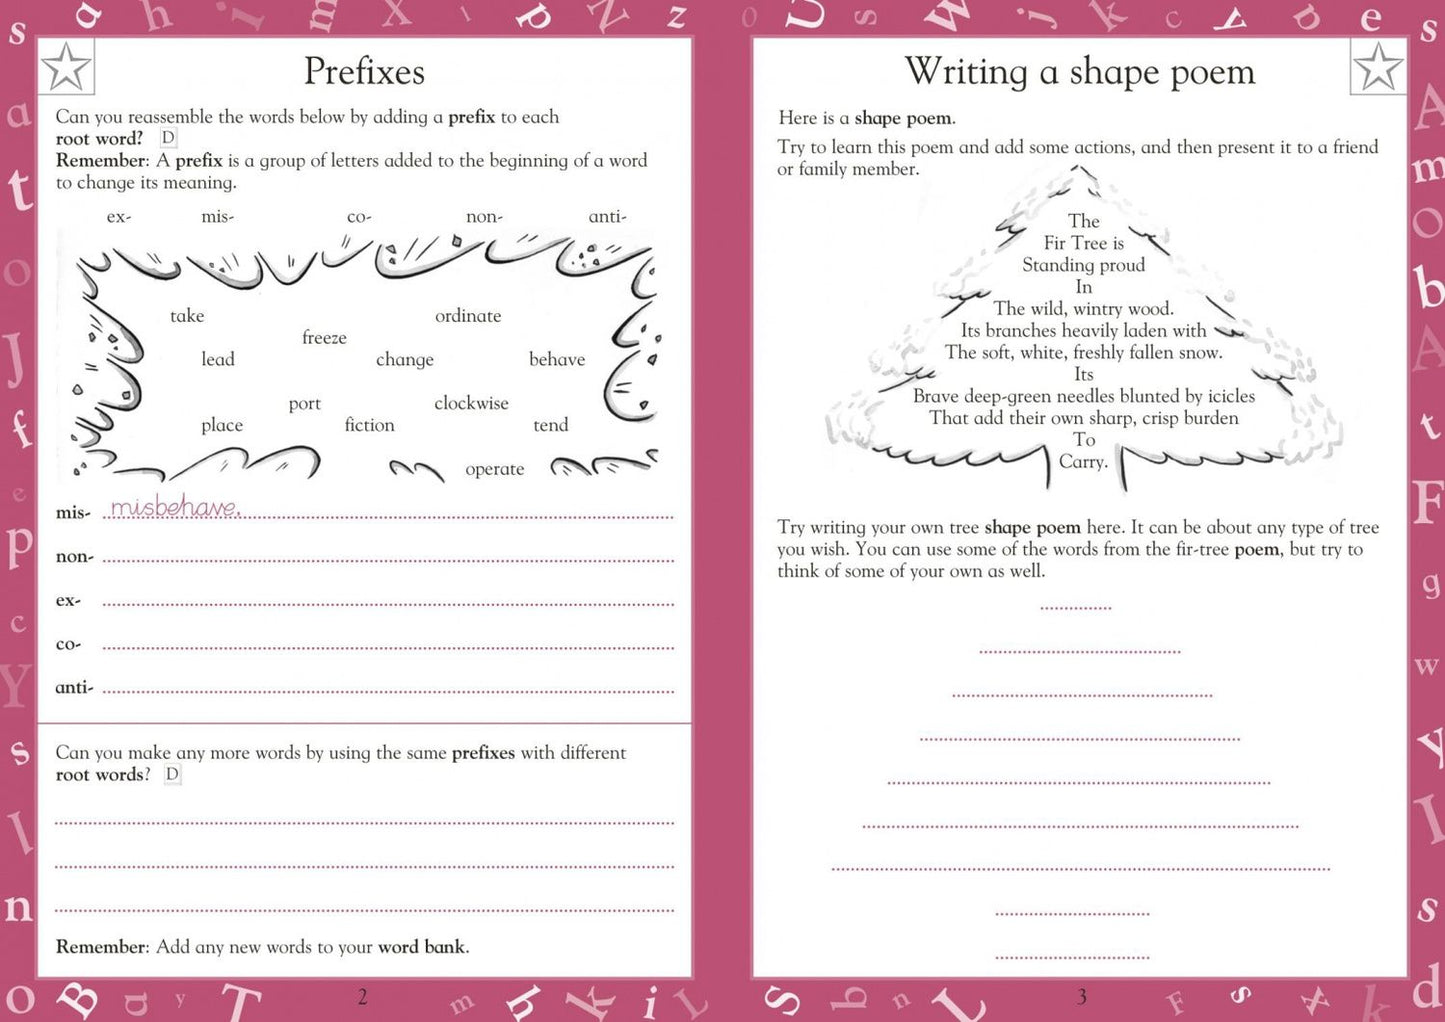 Prefixes
Can you reassemble the words below by adding a prefix to each
root word? D
Remember: A prefix is a group of letters added to the beginning of a word
to change its meaning.
ex- mis- co- non- anti-
take ordinate
freeze
lead change behave
port clockwise
place fiction tend
operate
mis- misbehave.
non-
ex-
co-
anti-
Can you make any more words by using the same prefixes with different
root words? D
Remember: Add any new words to your word bank.
2
Writing a shape poem
Here is a shape poem.
Try to learn this poem and add some actions, and then present it to a friend
or family member.
The
Fir Tree is
Standing proud
In
The wild, wintry wood.
Its branches heavily laden with
The soft, white, freshly fallen snow.
Its
Brave deep-green needles blunted by icicles
That add their own sharp, crisp burden
To
Carry.
Try writing your own tree shape poem here. It can be about any type of tree
you wish. You can use some of the words from the fir-tree poem, but try to
think of some of your own as well.
3